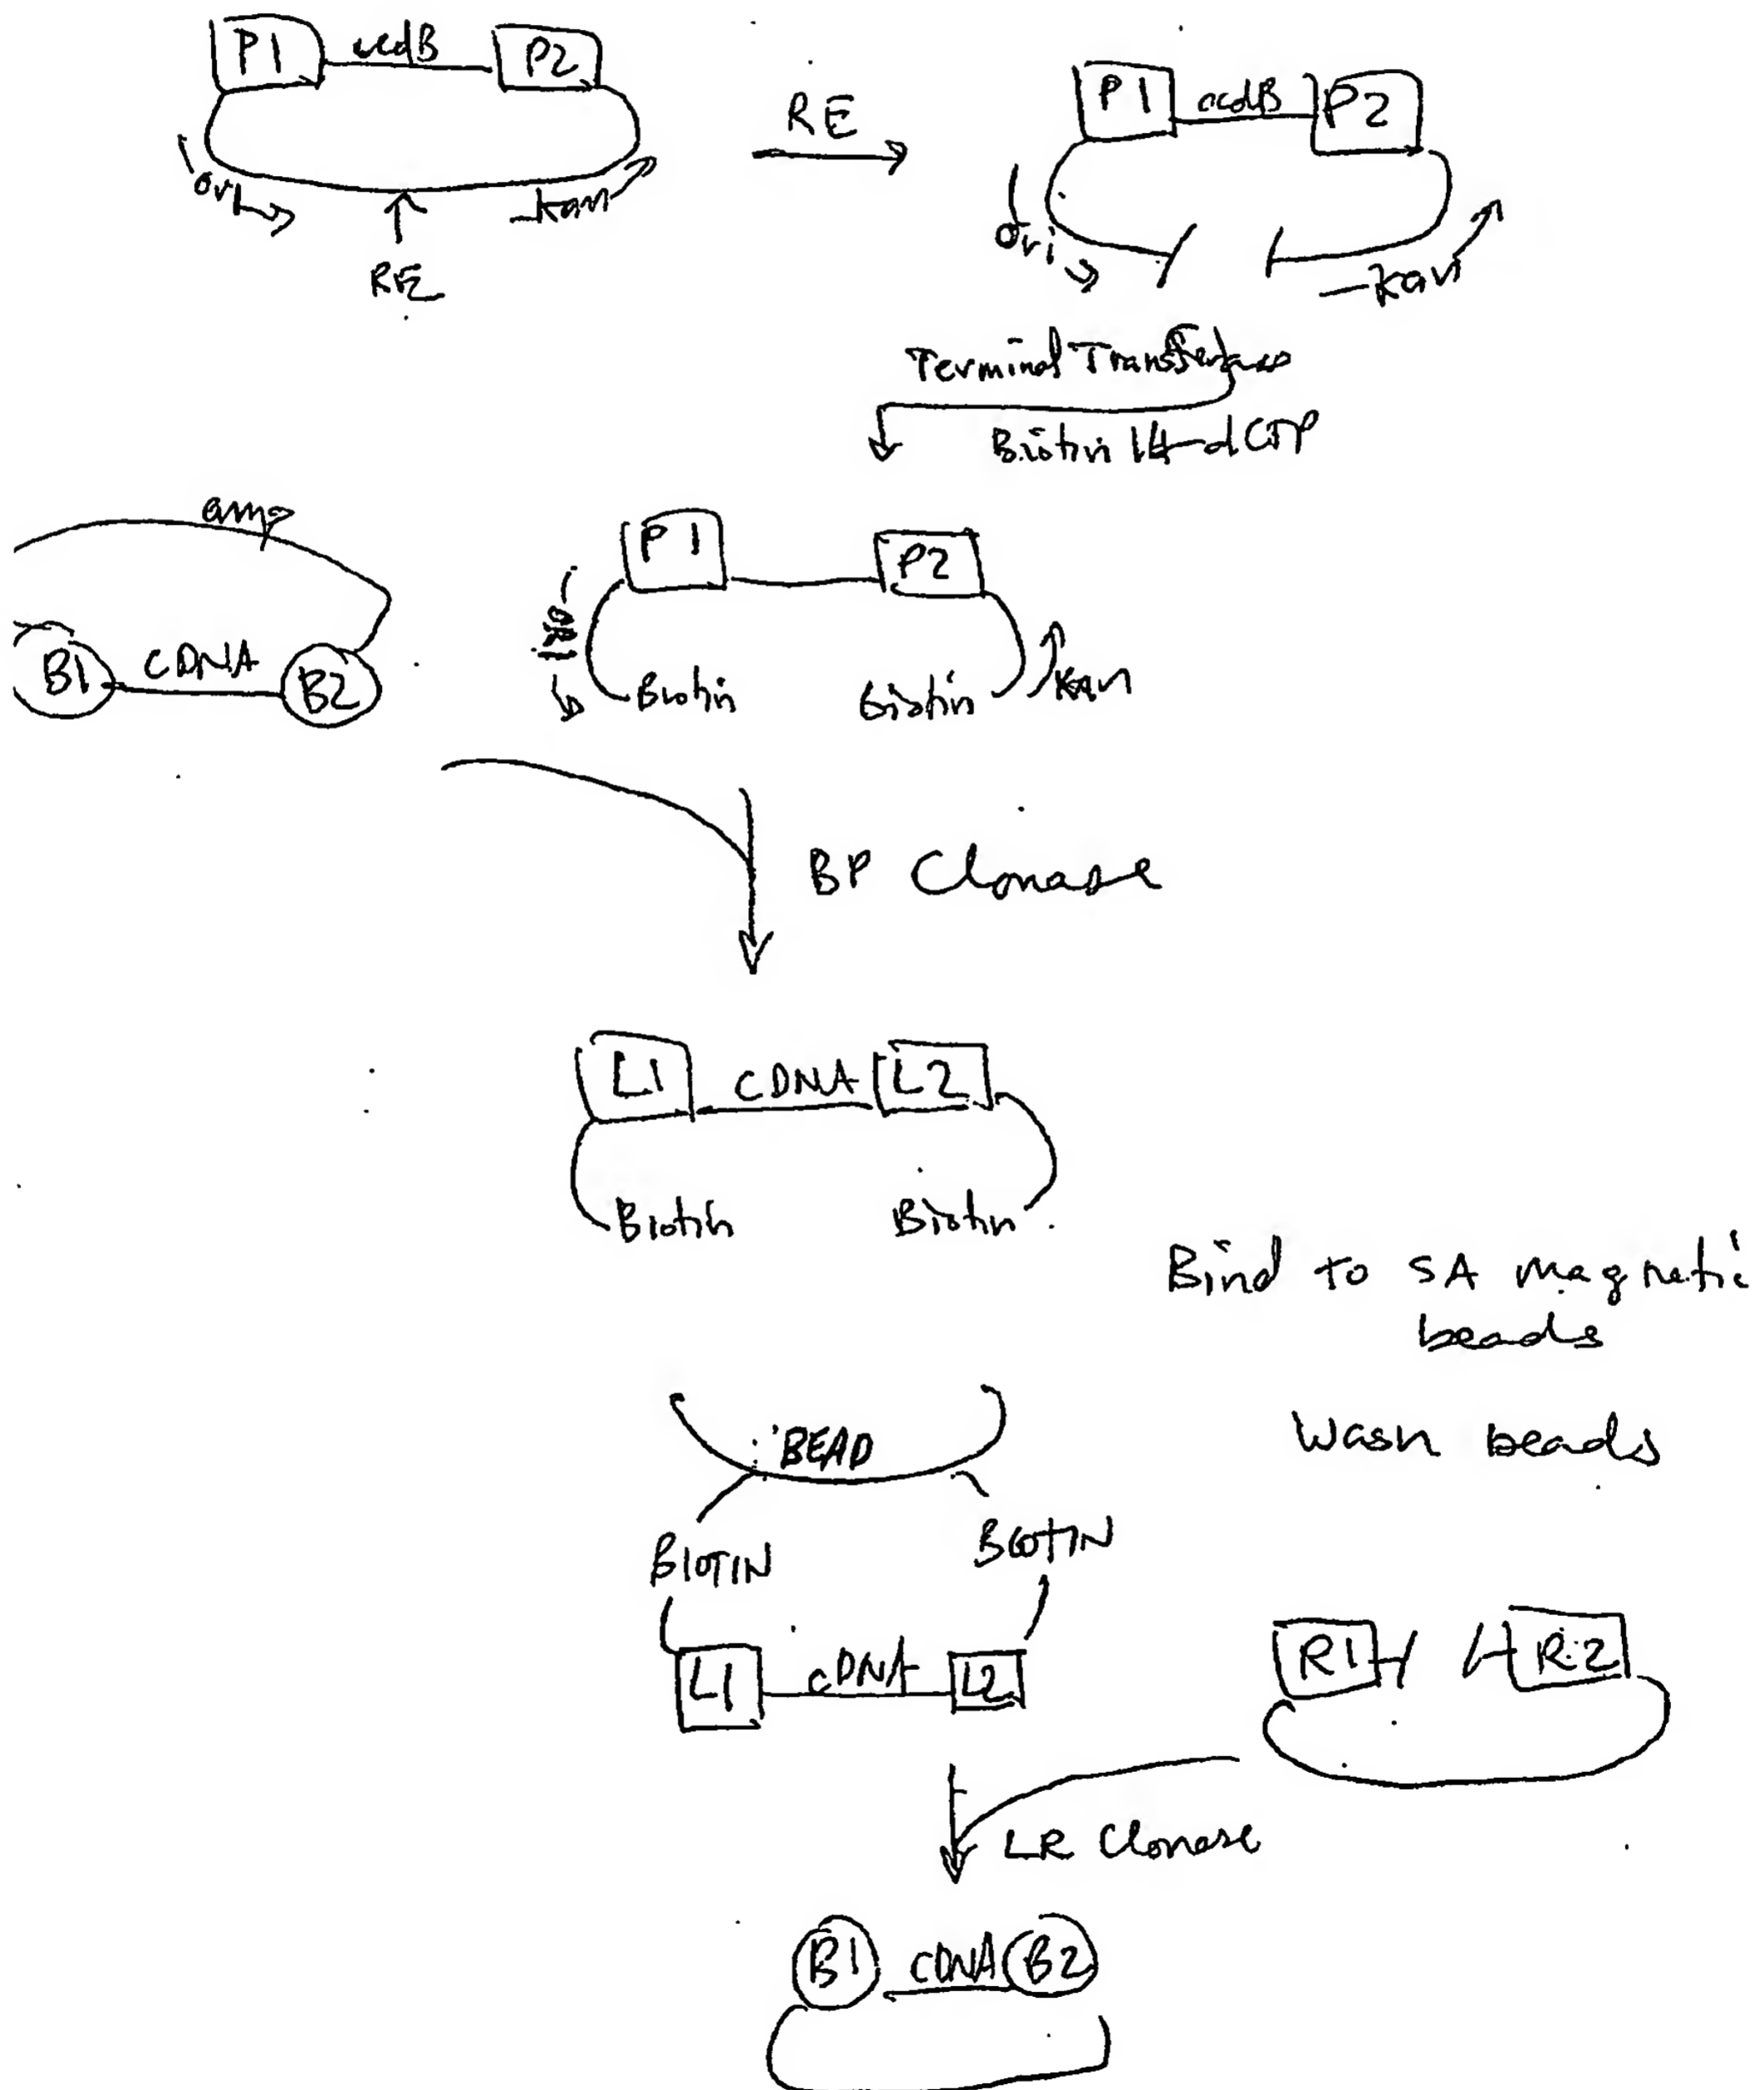 P1 ccdB P2
RE
P1 ccdB P2
ori
kan
RE
ori
kan
Terminal Transferase
Biotin 14-dCTP
amp
P1
P2
B1 cDNA B2
Biotin Biotin
kan
BP Clonase
L1 cDNA L2
Biotin Biotin
Bind to SA magnetic
beads
Wash beads
BEAD
BIOTIN BIOTIN
L1 cDNA L2
R1 R2
LR Clonase
B1 cDNA B2